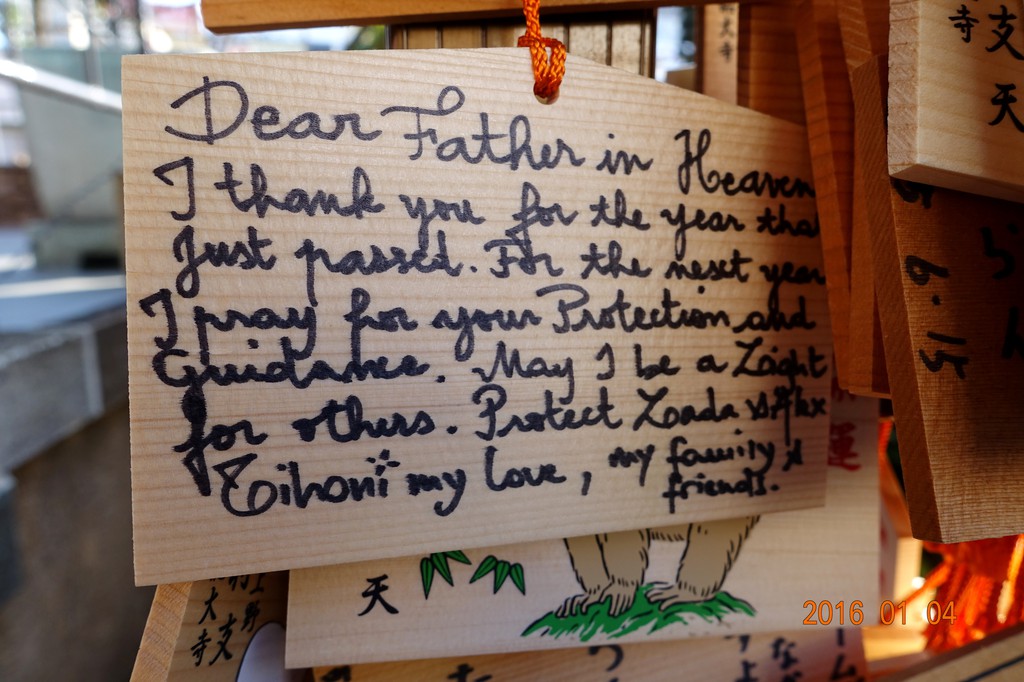 Dear Father in Heaven
I thank you for the year that
Just passed. For the next year
I pray for your Protection and
Guidance. May I be a Light
for others. Protect & Alex
my love, my family &
friends.
天
上野
大
支
寺
寺 支
天
大寺
6.15
2016 01 04